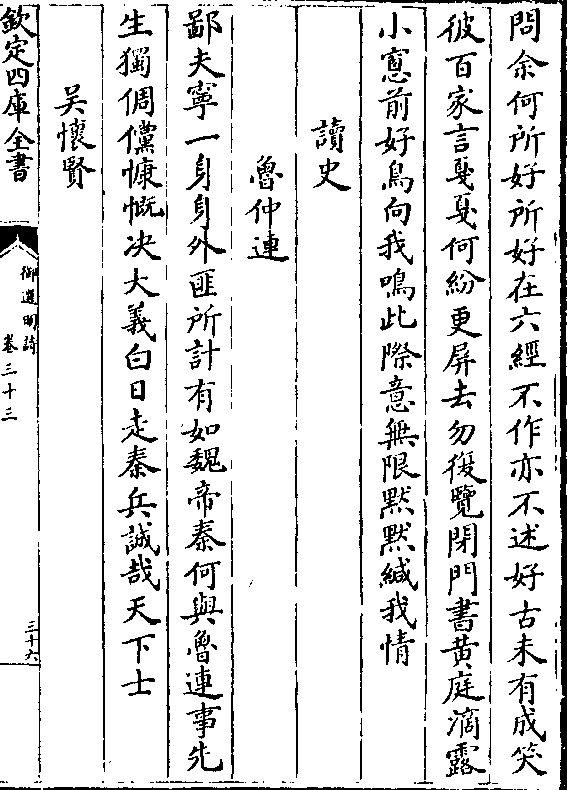 問余何所好所好在六經不作亦不述好古未有成笑
彼百家言戛戛何紛更屏去勿復覽閉門書黄庭滴露
小窻前好鳥向我鳴此際意無限黙黙緘我情
讀史
魯仲連
鄙夫寧一身身外匪所計有如魏帝秦何與魯連事先
生獨倜儻慷慨决大義白日走秦兵誠哉天下士
吴懷賢
欽定四庫全書
御選明詩
卷三十三
三十六